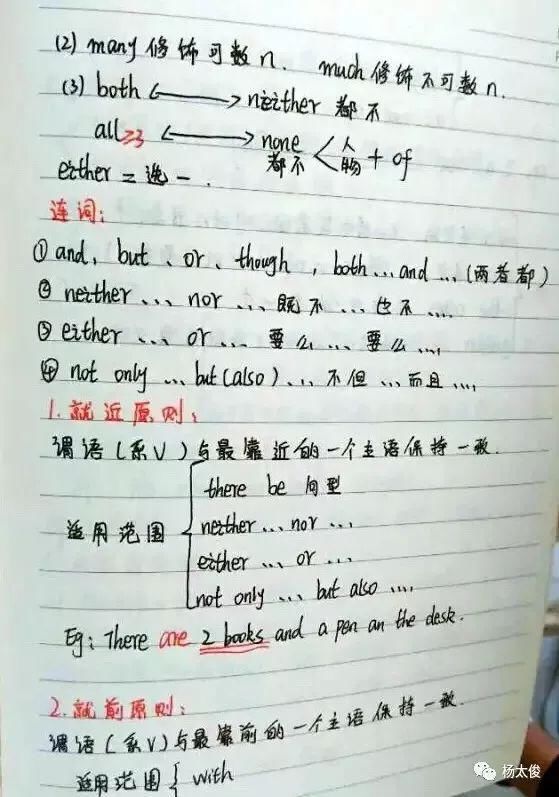 (2) many 修饰可数n. much 修饰不可数n.
(3) both ←→ neither 都不
all≥3 ←→ none 都不 < 人 物 + of
either = 选一.
连词:
① and, but、or、though, both...and...(两者都)
② neither... nor... 既不...也不....
③ either... or... 要么...要么....
④ not only ... but(also)... 不但...而且....
1.就近原则:
谓语(系V)与最靠近的一个主语保持一致.
适用范围
there be 句型
neither...nor...
either ... or ...
not only ... but also ....
Eg: There are 2 books and a pen an the desk.
2.就前原则:
谓语(系V)与最靠前的一个主语保持一致.
适用范围{ with
杨太俊